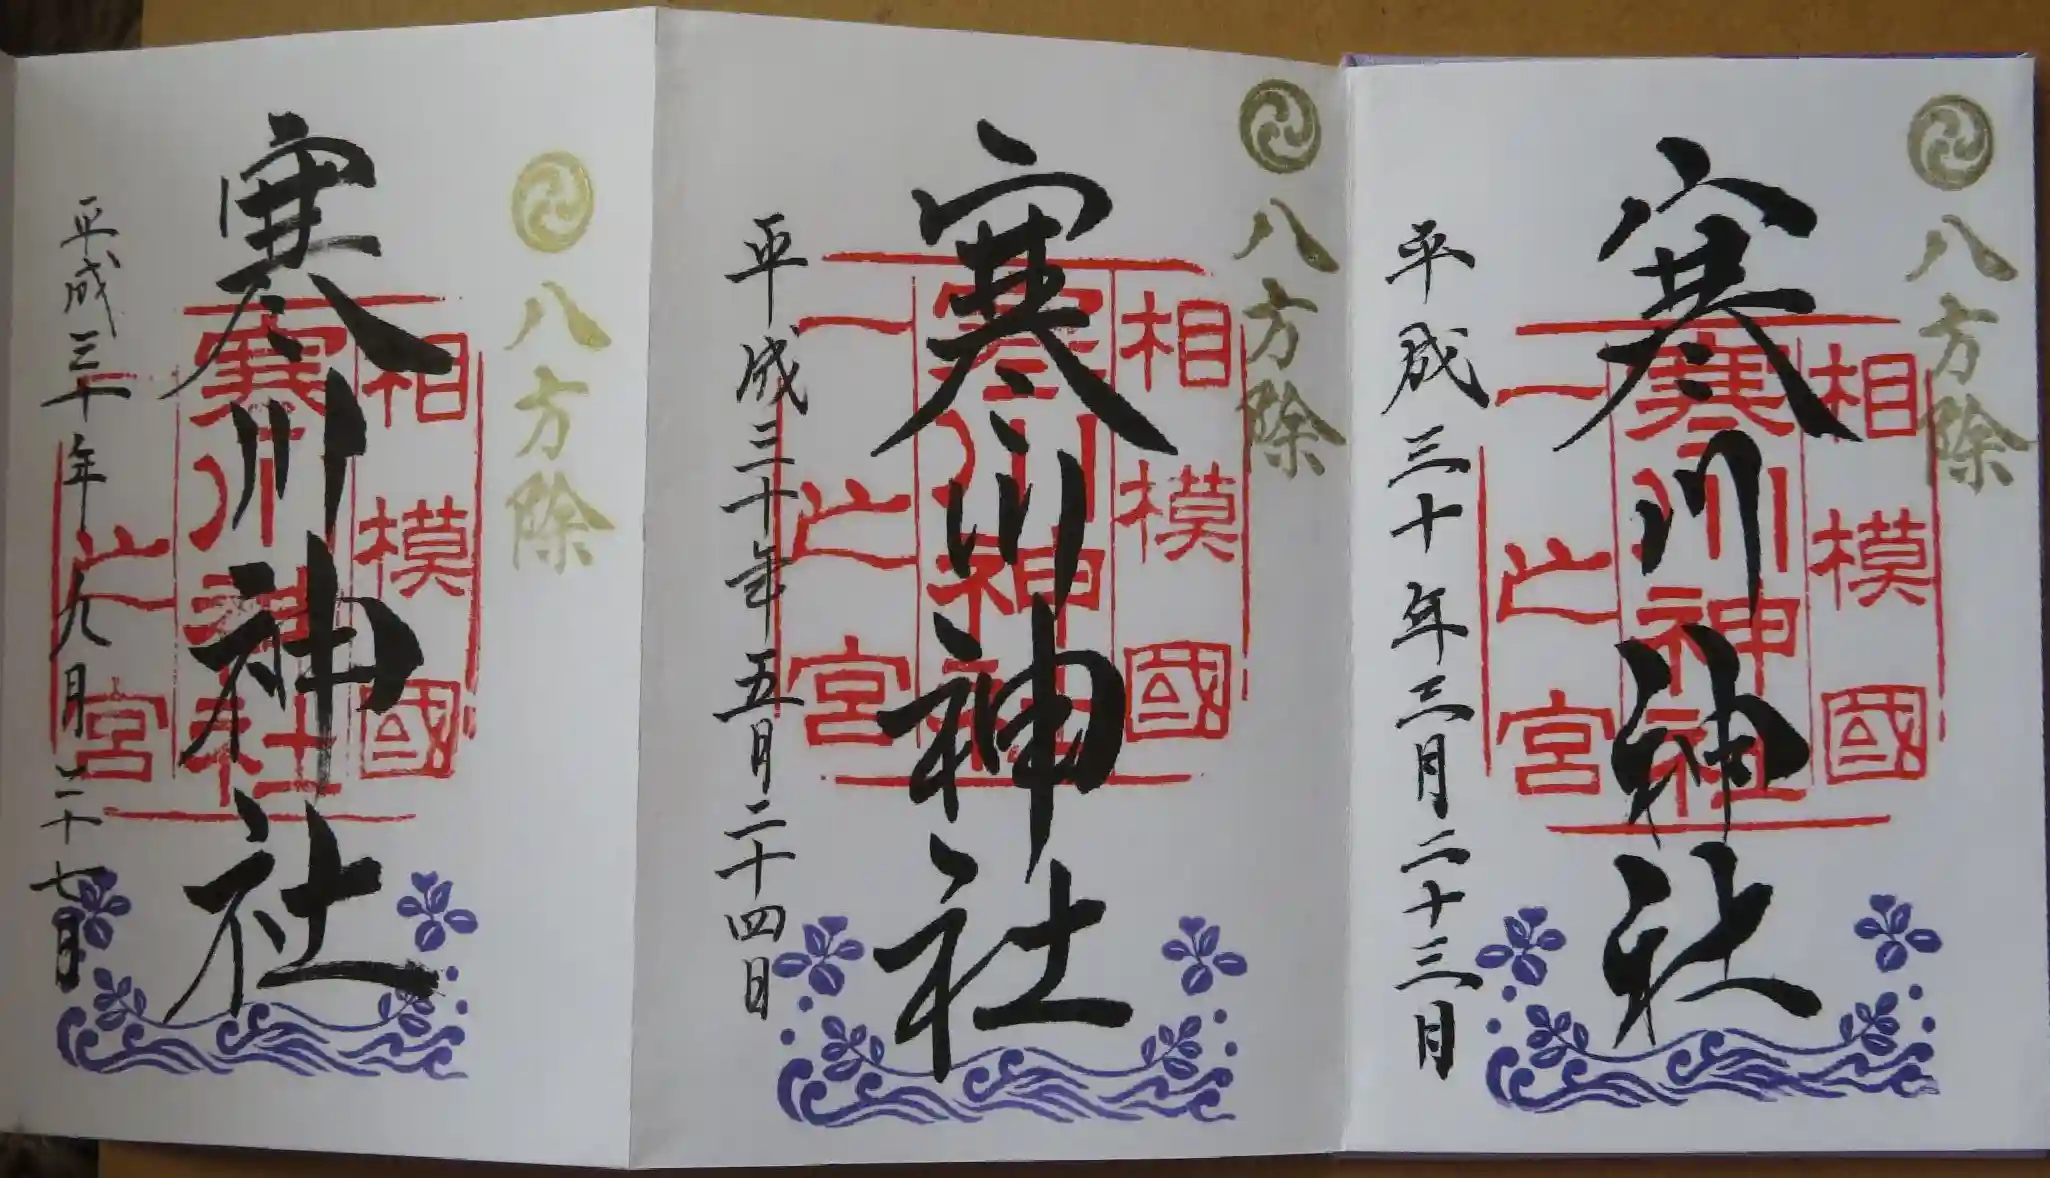 八方除
寒川神社
相模國
寒川神社
一之宮
平成三十年三月二十三日
八方除
寒川神社
相模國
寒川神社
一之宮
平成三十年五月二十四日
八方除
寒川神社
相模國
寒川神社
一之宮
平成三十年九月二十七日